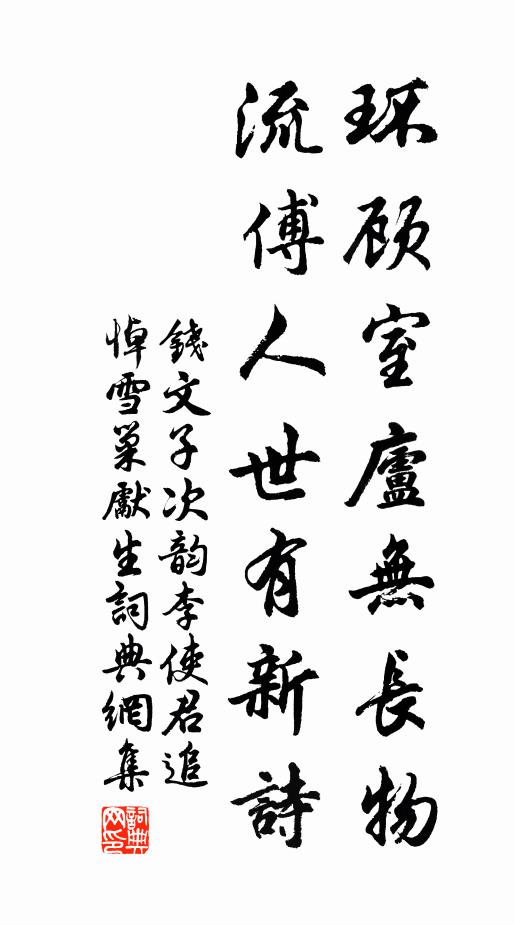 环顾室廬無長物
流傅人世有新詩
錢文子次韵李使君追
悼雪巢獻生詞典網集
詞典網印